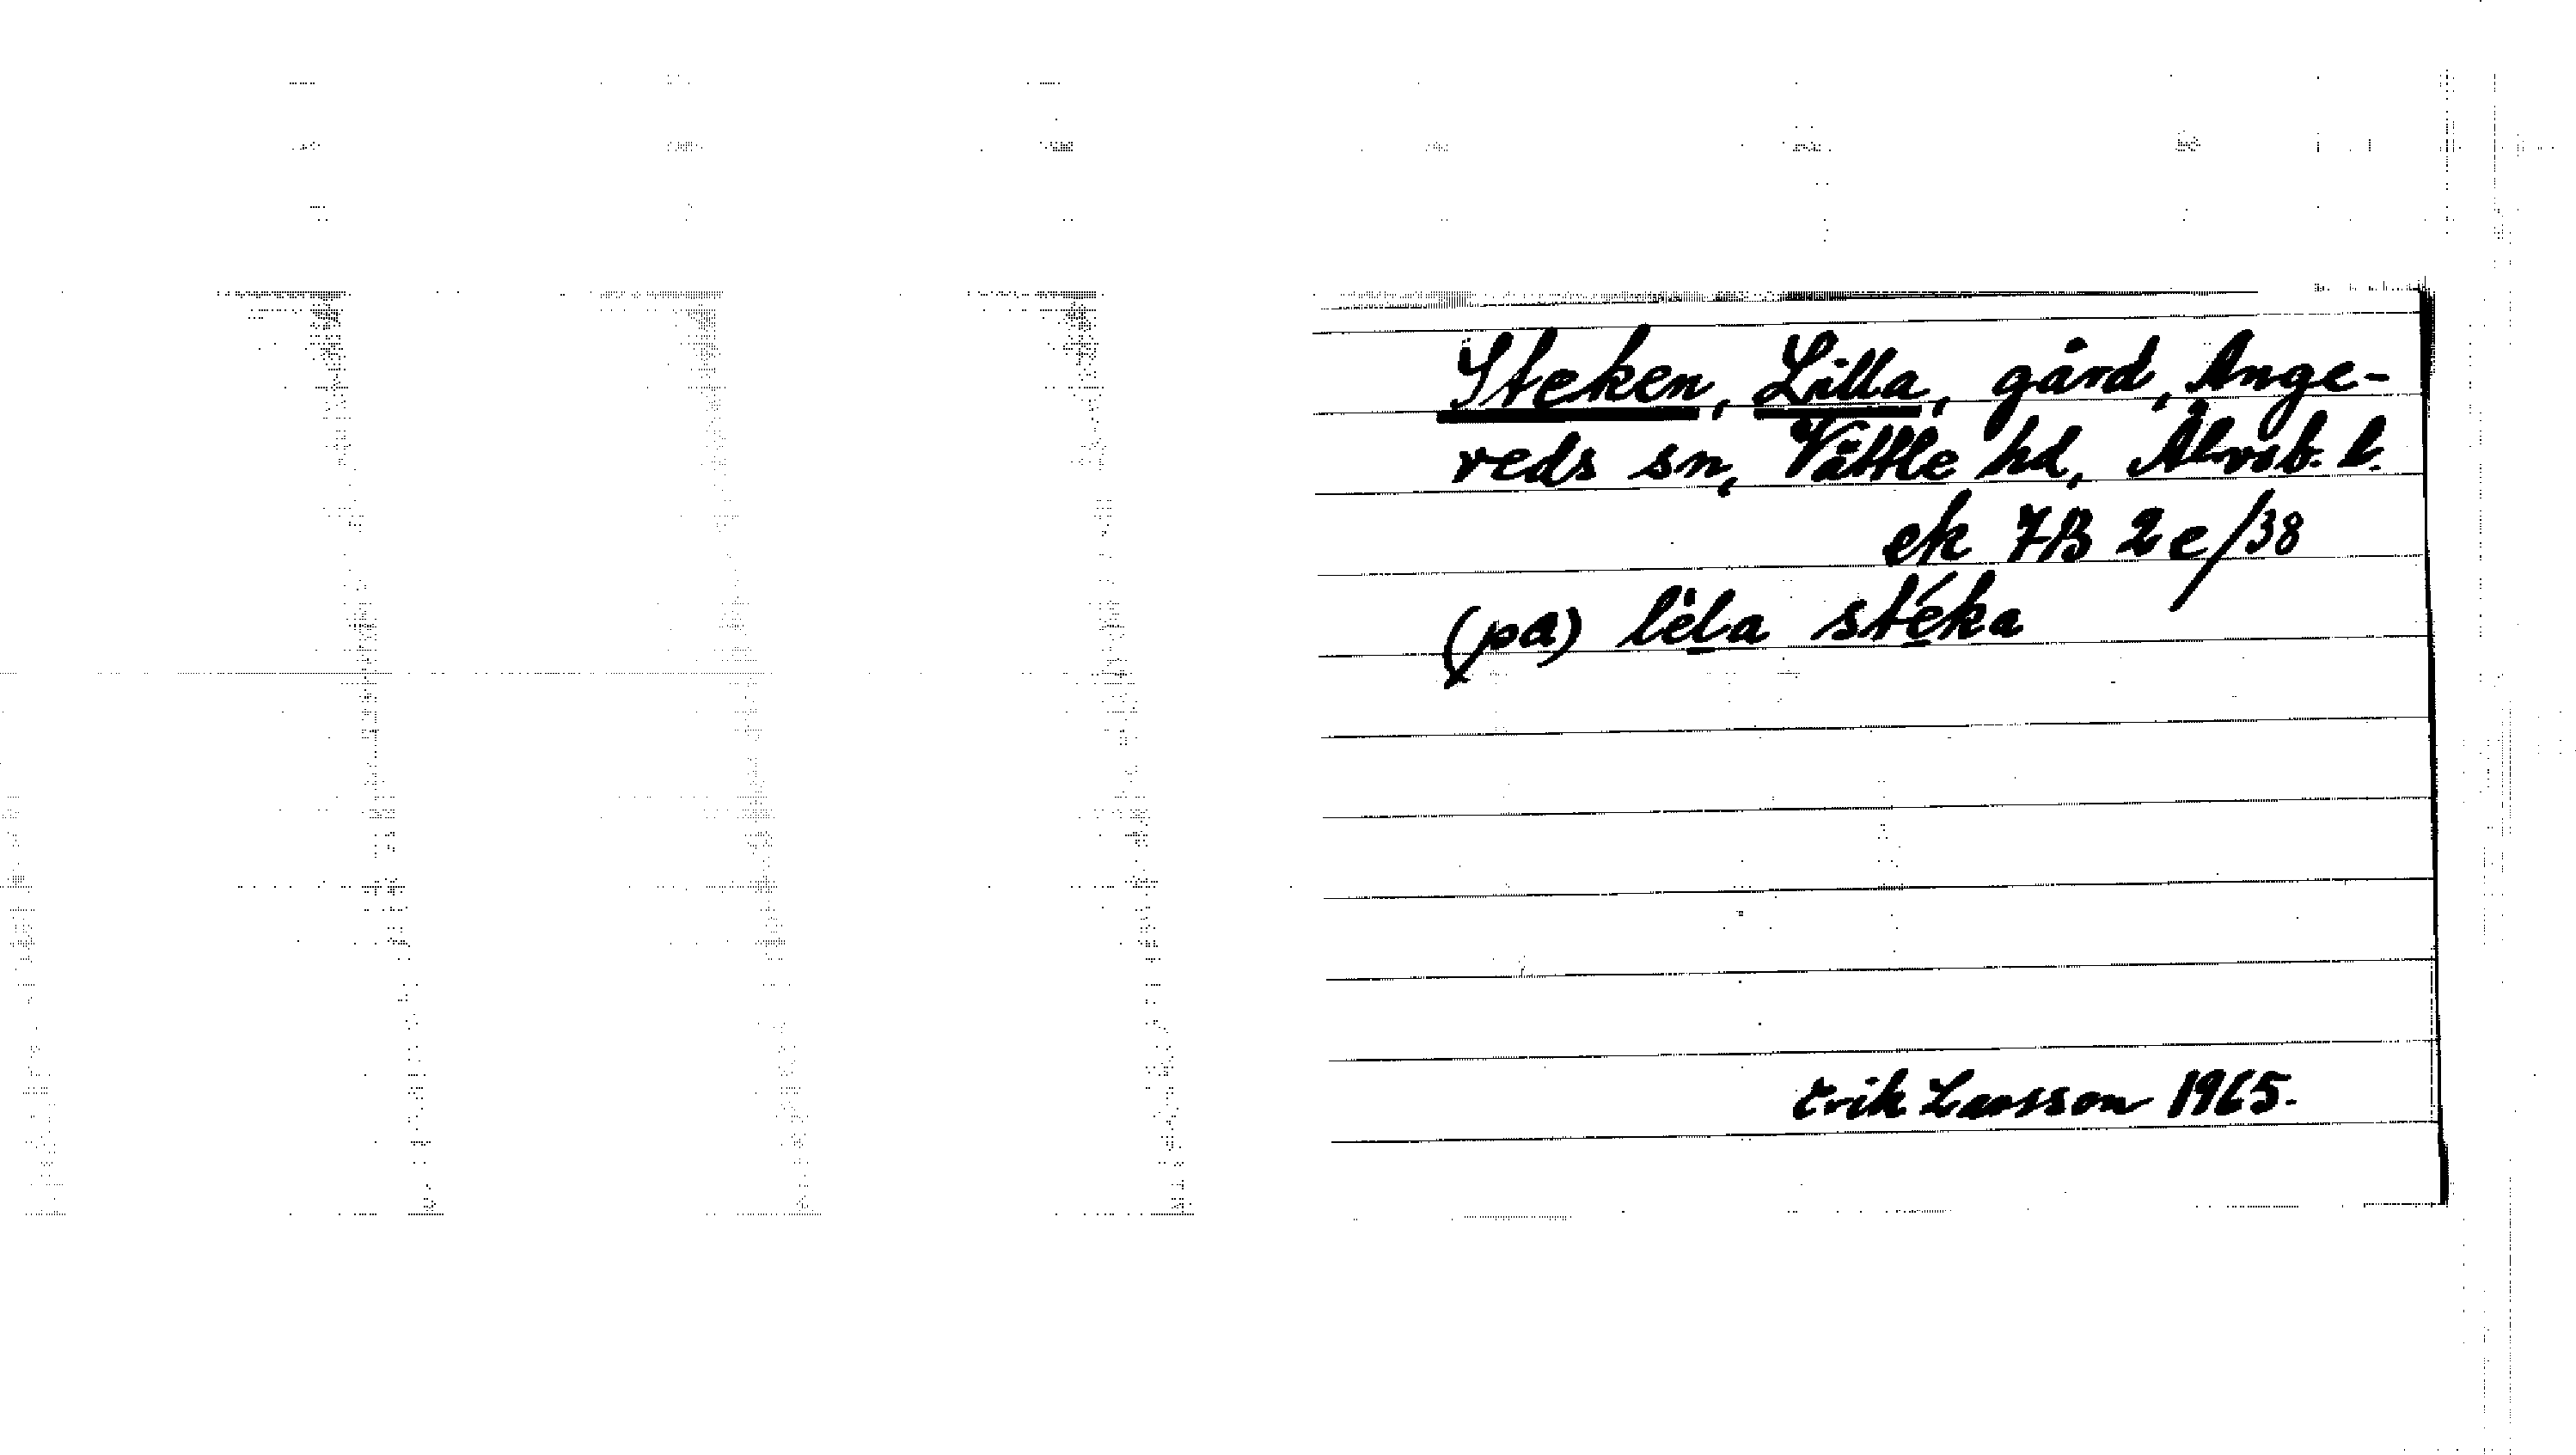 Steken, Lilla, gård, Ange-
reds sn, Vättle hd, Älvsb. l.
ek 7B 2e/38
(pa) lèla stéka
Erik Larsson 1965.